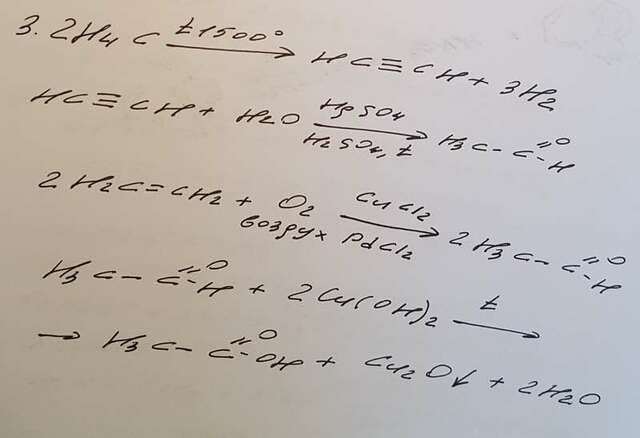 3. 2H4 C t1500° → HC≡CH + 3H2
HC≡CH + H2O HgSO4 H2SO4, t → H3C-C=O-H
2 H2C=CH2 + O2 воздух CuCl2 PdCl2 → 2 H3C-C=O-H
H3C-C=O-H + 2Cu(OH)2 t →
→ H3C-C=O-OH + Cu2O↓ + 2H2O